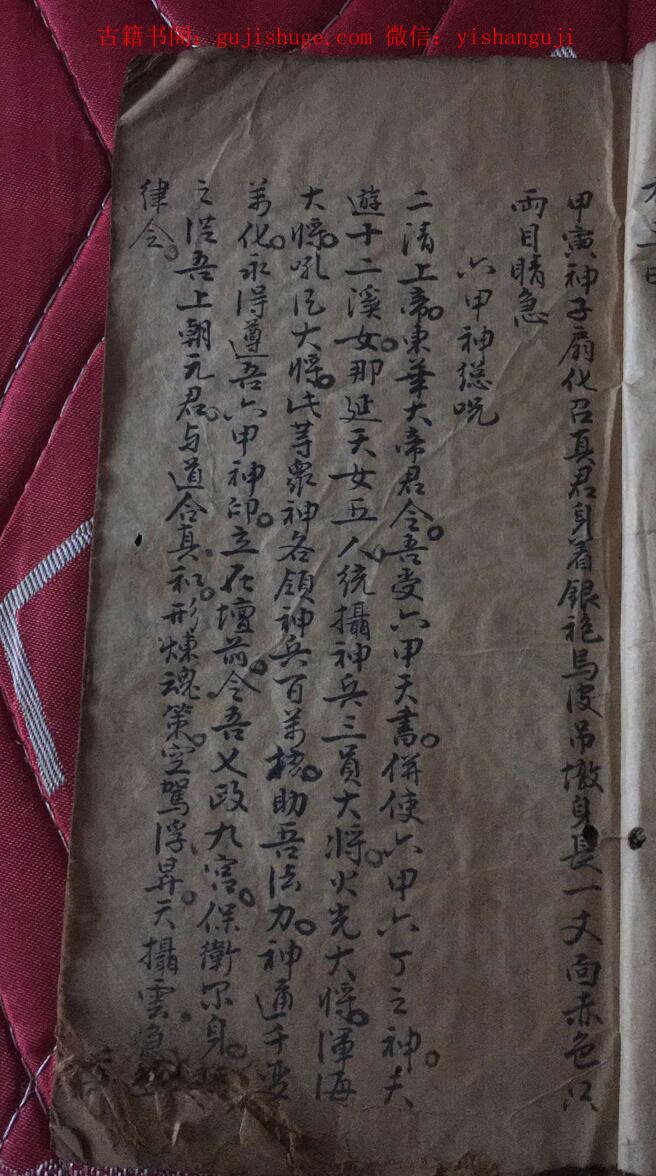 古籍书阁：gujishuge.com 微信：yishanguji
甲寅神子扇化召真君身着銀袍烏皮吊墩身長一丈面赤色以
兩目睛急
六甲神總咒
二清上帝。東華大帝君令。吾受六甲天書。併使六甲六丁之神。天
遊十二溪女。那延天女五人統攝神兵三員大將。火光大將。渾海
大將。吼风大將。此等眾神各領神兵百萬。助吾法力。神通千变
萬化。永得遵吾六甲神印。立在壇前。令吾七政九宮。保衛尔身。
之從吾上朝元君。与道合真。和形煉魂。策空駕浮。昇天攝雲。急
律令。